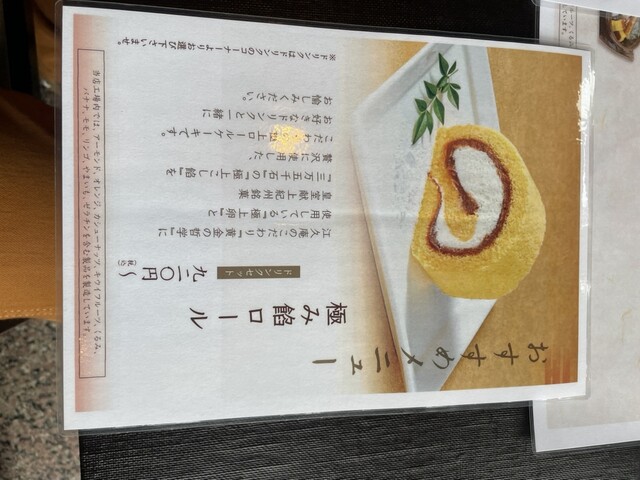 おすすめメニュー
極み餡ロール
ドリンクセット
九二〇円〜
(税込)
江久庵のこだわり『黄金の哲学』に
使用している『極上卵』と
皇室献上 紀州銘菓
『三万五千石の『極上こし餡』を
贅沢に使用した、
こだわ上ロールケーキです。
お好きなドリンクと一緒に
お愉しみください。
※ドリンクはドリンクのコーナーよりお選び下さいませ
当店工場内では、アーモンド、オレンジ、カシューナッツ、キウイフルーツ、くるみ、
バナナ、モモ、リンゴ、やまいも、ゼラチンを含む製品を製造しています。